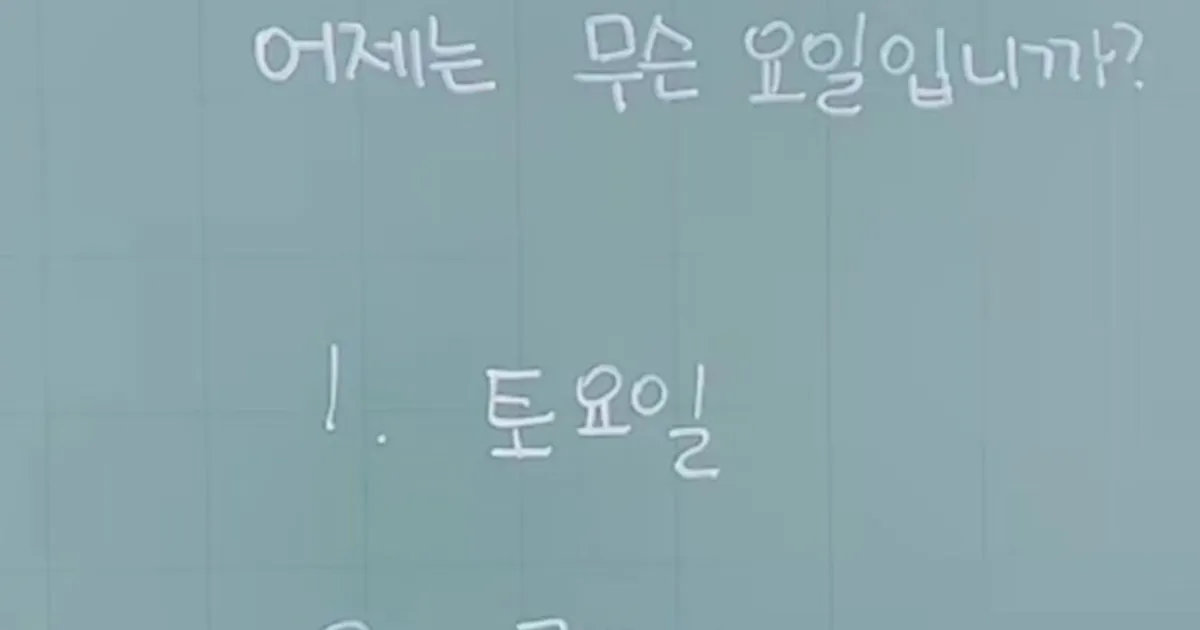 어제는 무슨 요일입니까?
1. 토요일